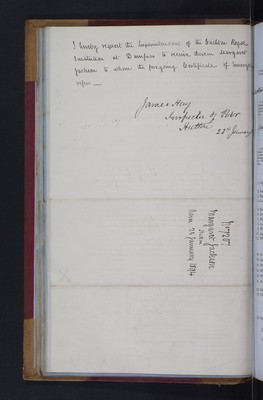 I hereby request the Superintendent of the Crichton Royal
Institution at Dumfries to receive therein Margaret
Jackson to whom the foregoing Certificate of Emergency
refers
James Hay
Inspector of Poor
23rd January
No 7207
Margaret Jackson
23 January 1894